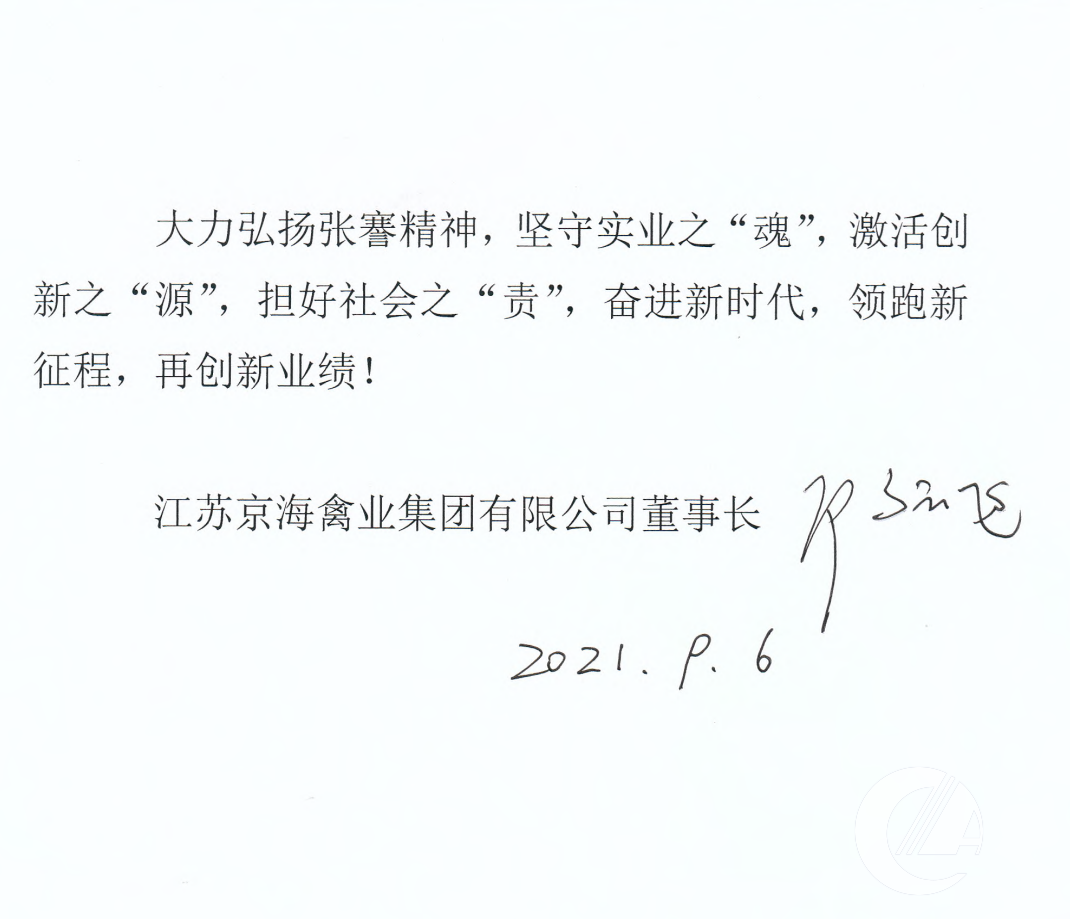 大力弘扬张謇精神，坚守实业之“魂”，激活创
新之“源”，担好社会之“责”，奋进新时代，领跑新
征程，再创新业绩！
江苏京海禽业集团有限公司董事长
2021. 9. 6